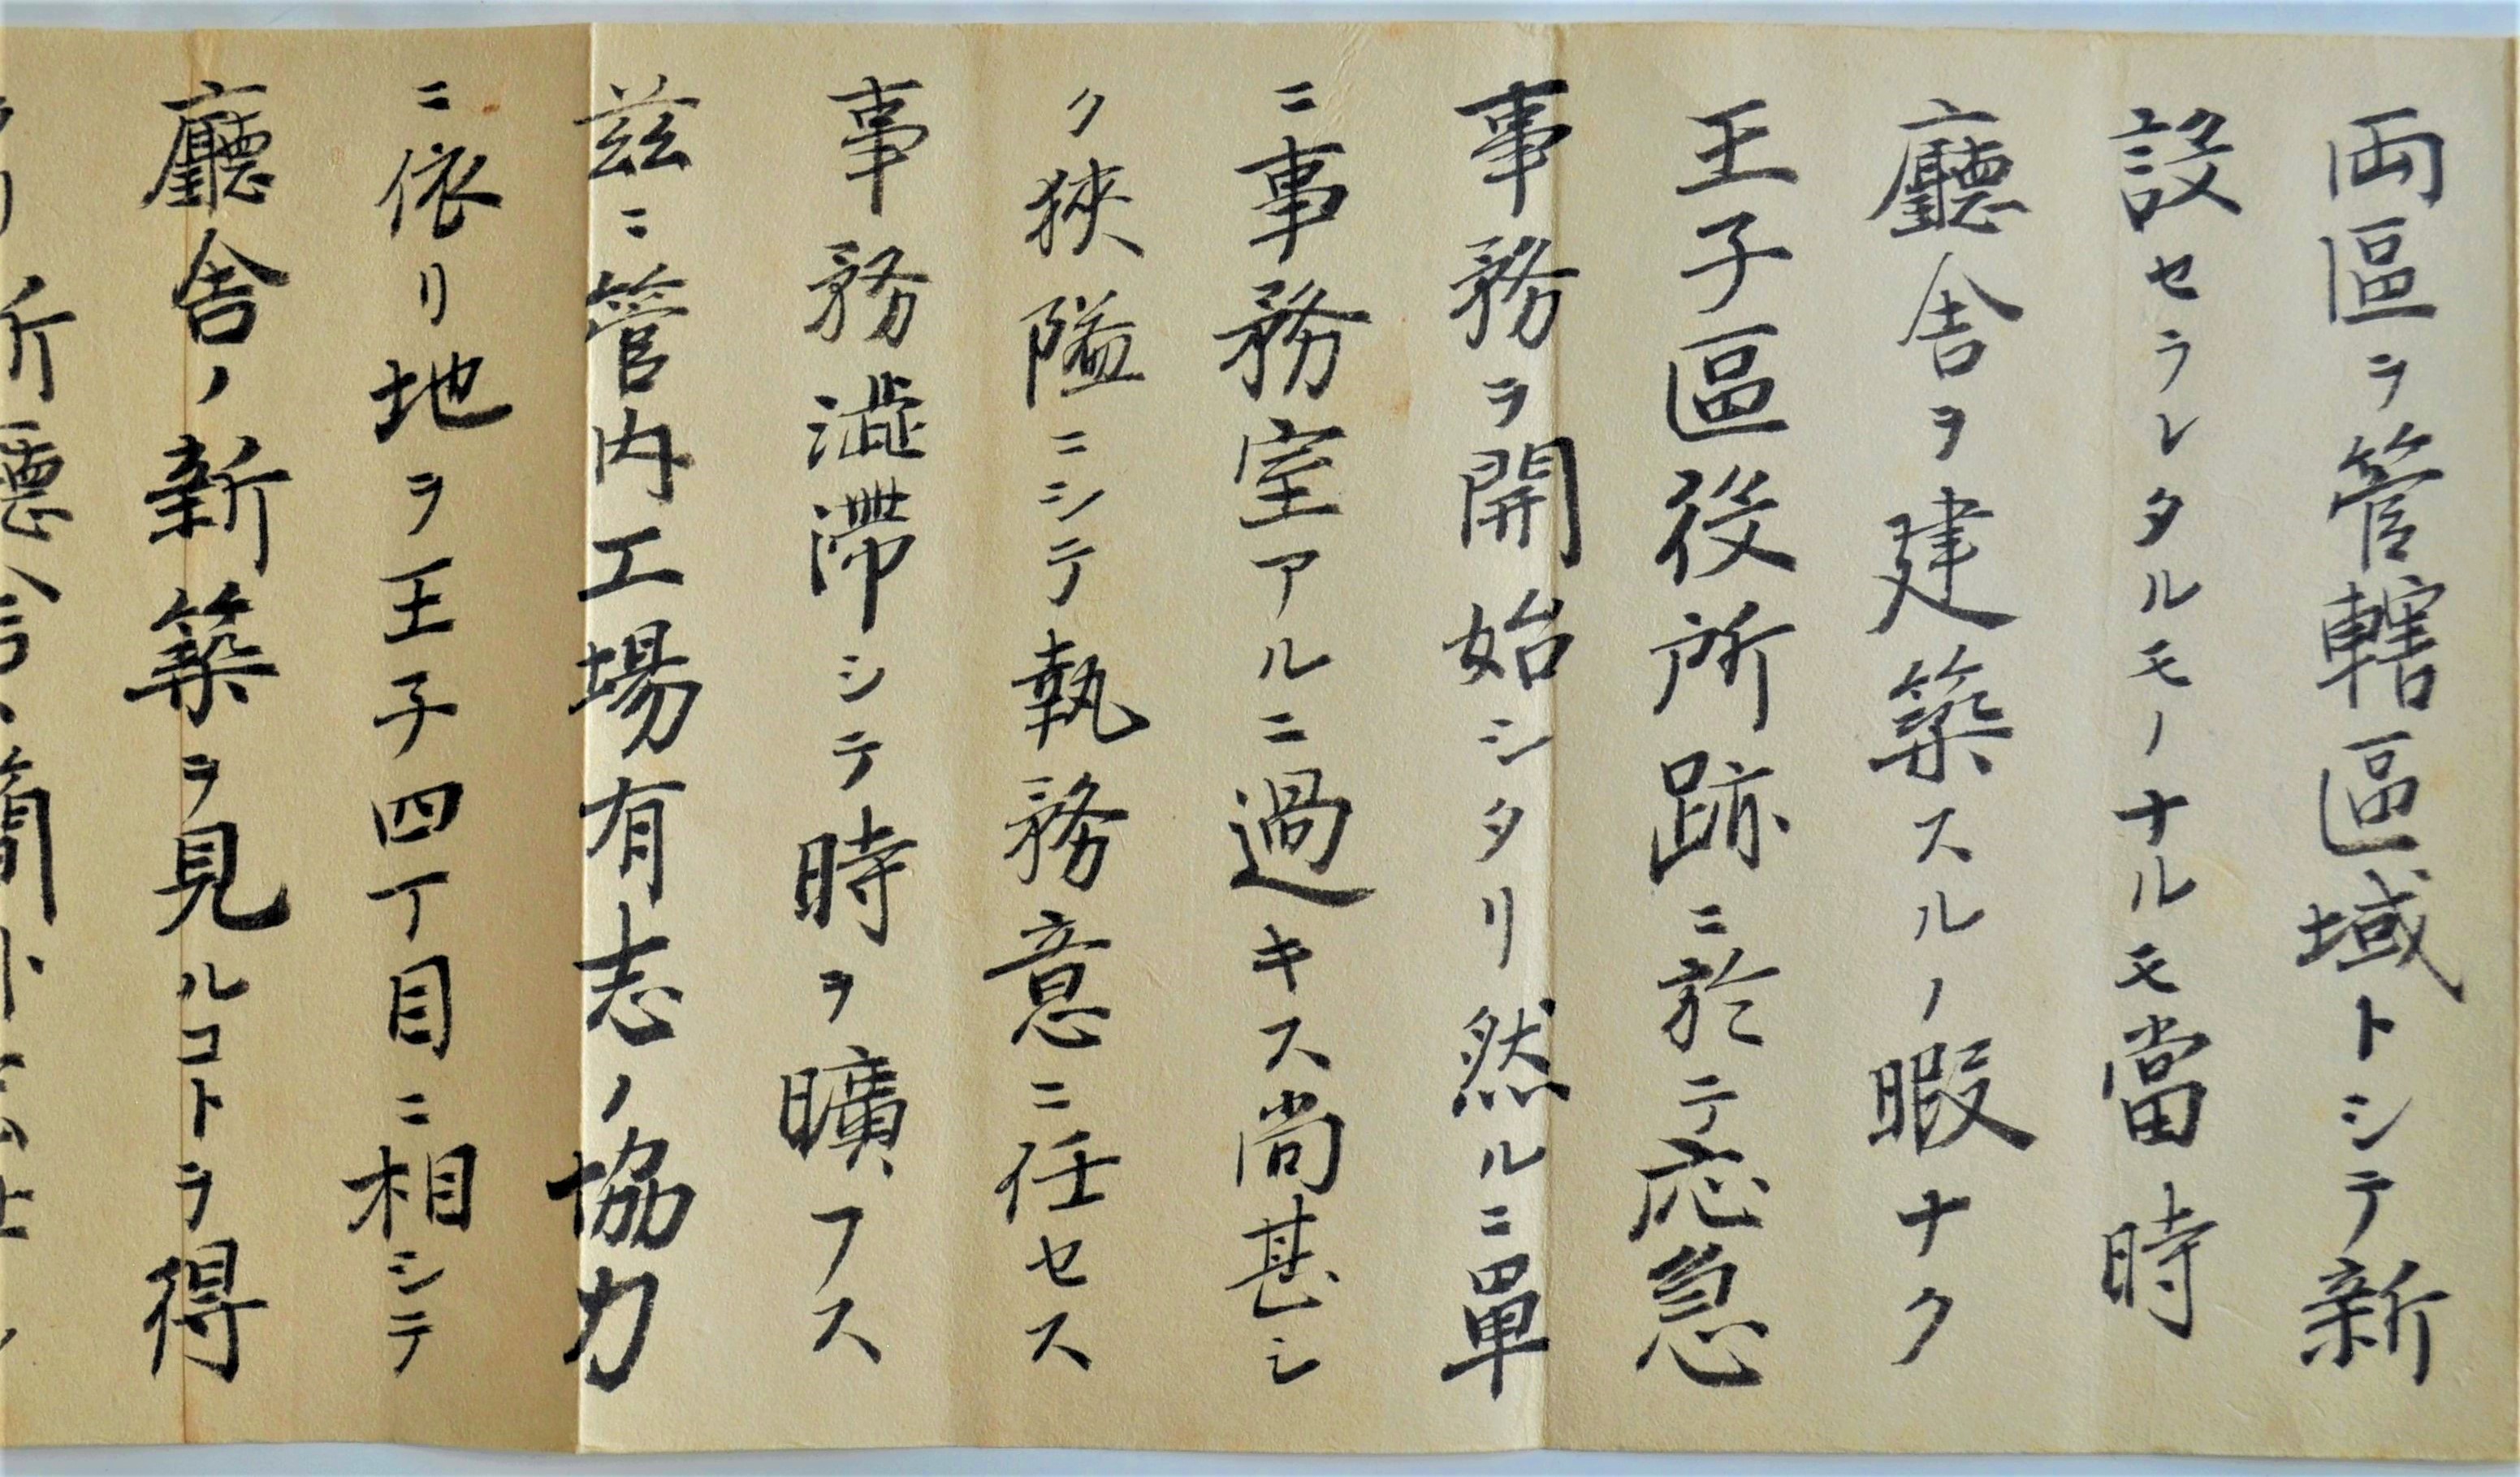 両區ヲ管轄區域トシテ新
設セラレタルモノナルモ當時
廳舎ヲ建築スルノ暇ナク
王子區役所跡ニ於テ応急
事務ヲ開始シタリ然ルニ單
ニ事務室アルニ過キス尚甚シ
ク狹隘ニシテ執務意ニ任セス
事務澁滯シテ時ヲ曠フス
茲ニ管内工場有志ノ協力
ニ依リ地ヲ王子四丁目ニ相シテ
廳舎ノ新築ヲ見ルコトヲ得